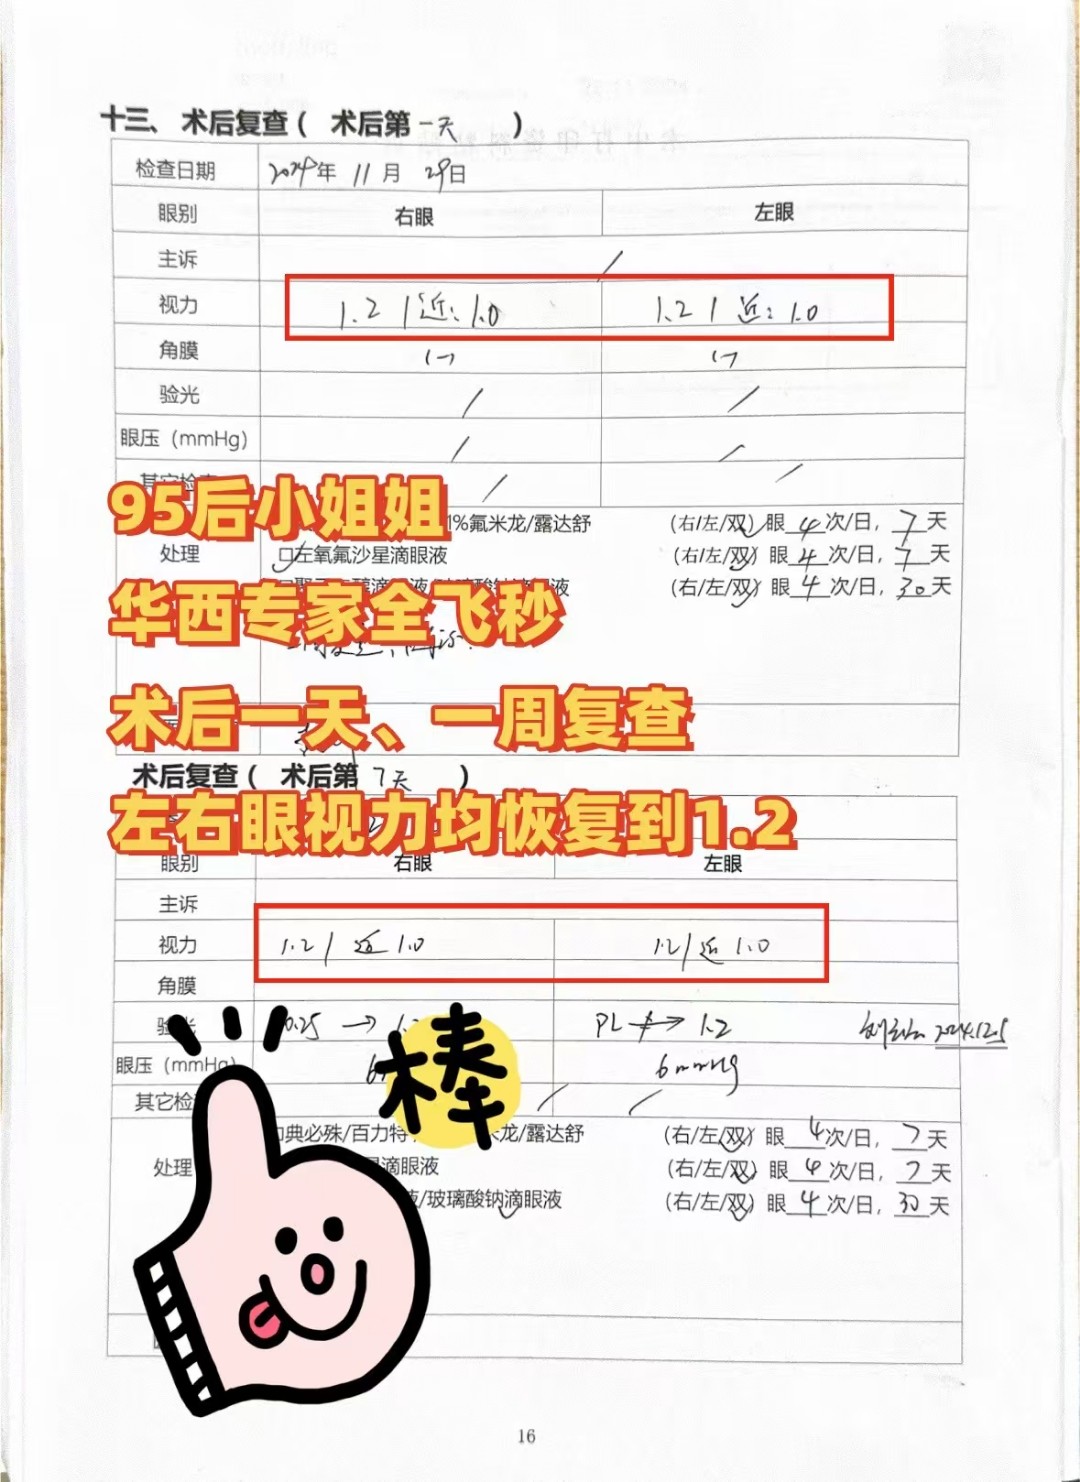 十三、术后复查( 术后第一天 )
检查日期 2024年 11月 29日
眼别 右眼 左眼
主诉 /
视力 1.2 / 近: 1.0 1.2 / 近: 1.0
角膜 (-) (-)
验光 / /
眼压 (mmHg) / /
/ /
95后小姐姐
1%氟米龙/露达舒 (右/左/双) 眼 4 次/日, 7 天
处理 左氧氟沙星滴眼液 (右/左/双) 眼 4 次/日, 7 天
(右/左/双) 眼 4 次/日, 30 天
华西专家全飞秒
术后一天、一周复查
术后复查( 术后第 7天 )
左右眼视力均恢复到1.2
眼别 右眼 左眼
主诉
视力 1.2 / 近 1.0 1.2 / 近 1.0
角膜
验光 0.25 → PL → 1.2 2024.12.5
棒
眼压 (mmHg) 6mmHg
其它检 / /
典必殊/百力特 米龙/露达舒 (右/左/双) 眼 4 次/日, 7 天
处理 滴眼液 (右/左/双) 眼 4 次/日, 7 天
液/玻璃酸钠滴眼液 (右/左/双) 眼 4 次/日, 30 天
16